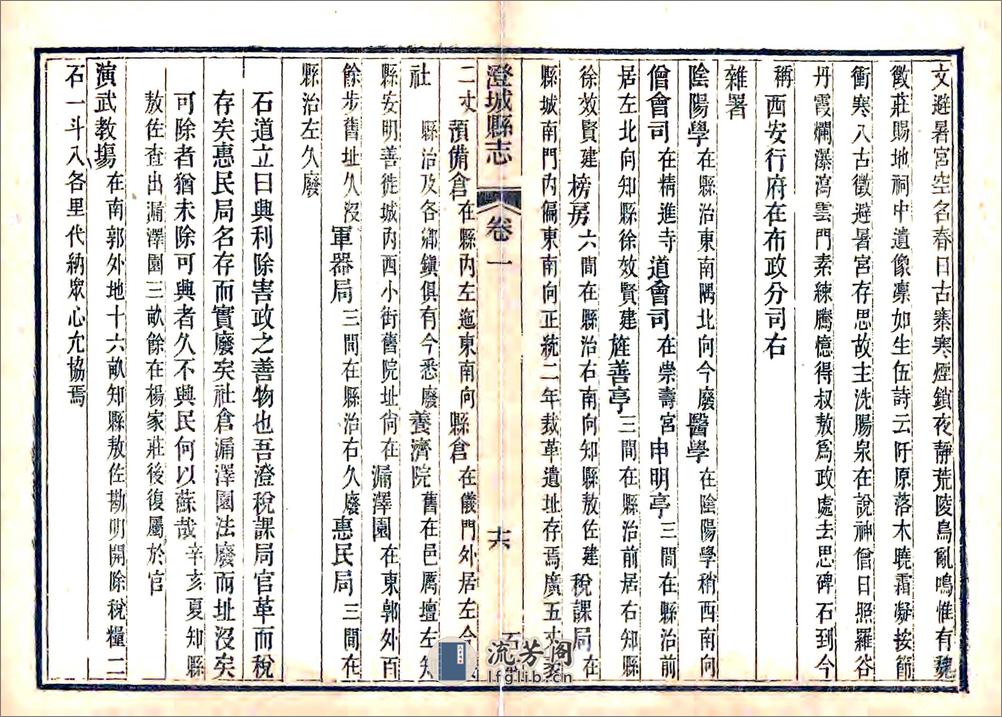 文避暑宮空名春日古寨寒煙鎖夜靜荒陵鳥亂鳴惟有魏
徵莊賜地祠中遺像凛如生伍詩云阡原落木曉霜凝按節
衝寒入古徵避暑宮存思故主洗腸泉在說神僧日照羅谷
丹霞爛瀑瀉雲門素練騰憶得叔敖爲政處去思碑石到今
稱 西安行府在布政分司右
雜署
陰陽學在縣治東南隅北向今廢 醫學在陰陽學稍西南向
僧會司在精進寺 道會司在崇壽宮 申明亭三間在縣治前
居左北向知縣徐效賢建 旌善亭三間在縣治前居右知縣
徐效賢建 榜房六間在縣治右南向知縣敖佐建 稅課局在
縣城南門內偏東南向正統二年裁革遺址存焉廣五丈袤
二丈 預備倉在縣內左迤東南向 縣倉在儀門外居左今
澄城縣志 卷一 十六
社 縣治及各鄉鎮俱有今悉廢 養濟院舊在邑厲壇左知
縣安明善徙城內西小街舊院址尙在 漏澤園在東郭外百
餘步舊址久沒 軍器局三間在縣治右久廢 惠民局三間在
縣治左久廢
石道立曰興利除害政之善物也吾澄稅課局官革而稅
存矣惠民局名存而實廢矣社倉漏澤園法廢而址沒矣
可除者猶未除可興者久不興民何以蘇哉 辛亥夏知縣
敖佐查出漏澤園三畝餘在楊家莊後復屬於官
演武教塲在南郭外地十六畝知縣敖佐勘明開除稅糧二
石一斗入各里代納眾心允協焉
流芳閣
lfglib.cn